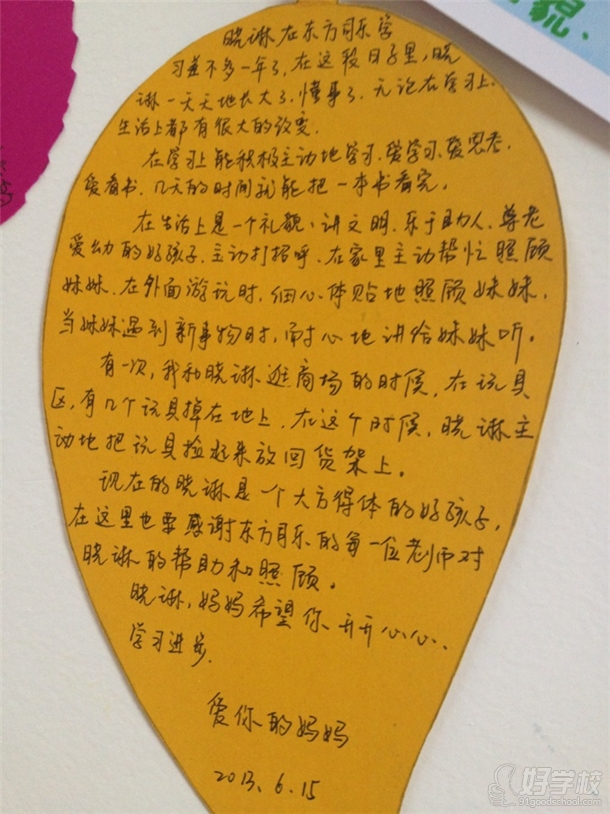 貌.
晓琳在东方月乐学
习差不多一年了,在这段日子里,晓
琳一天天地长大了,懂事了.无论在学习上.
生活上都有很大的改变.
在学习上能积极主动地学习.爱学习.爱思考.
爱看书.几天的时间就能把一本书看完.
在生活上是一个礼貌、讲文明.乐于助人.尊老
爱幼的好孩子.主动打招呼.在家里主动帮忙照顾
妹妹.在外面游玩时,细心体贴地照顾妹妹.
当妹妹遇到新事物时,耐心地讲给妹妹听。
有一次,我和晓琳逛商场的时候,在玩具
区,有几个玩具掉在地上.在这个时候,晓琳主
动地把玩具捡起来放回货架上。
现在的晓琳是一个大方得体的好孩子,
在这里也要感谢东方月乐的每一位老师对
晓琳的帮助和照顾。
晓琳,妈妈希望你开开心心、
学习进步.
爱你的妈妈
2013.6.15
好学校
91goodschool.com